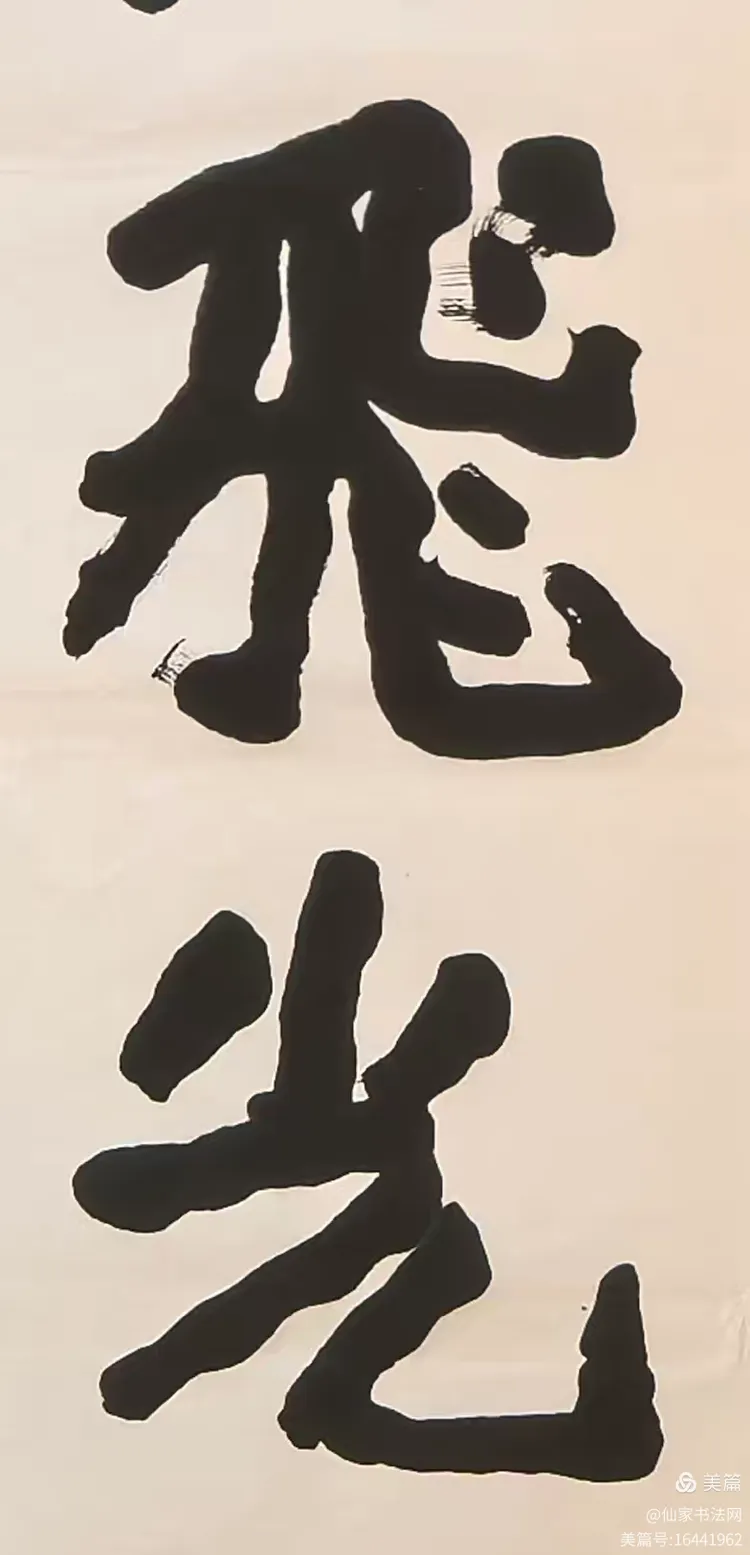 飛
光
美篇
@仙家书法网
美篇号:16441962